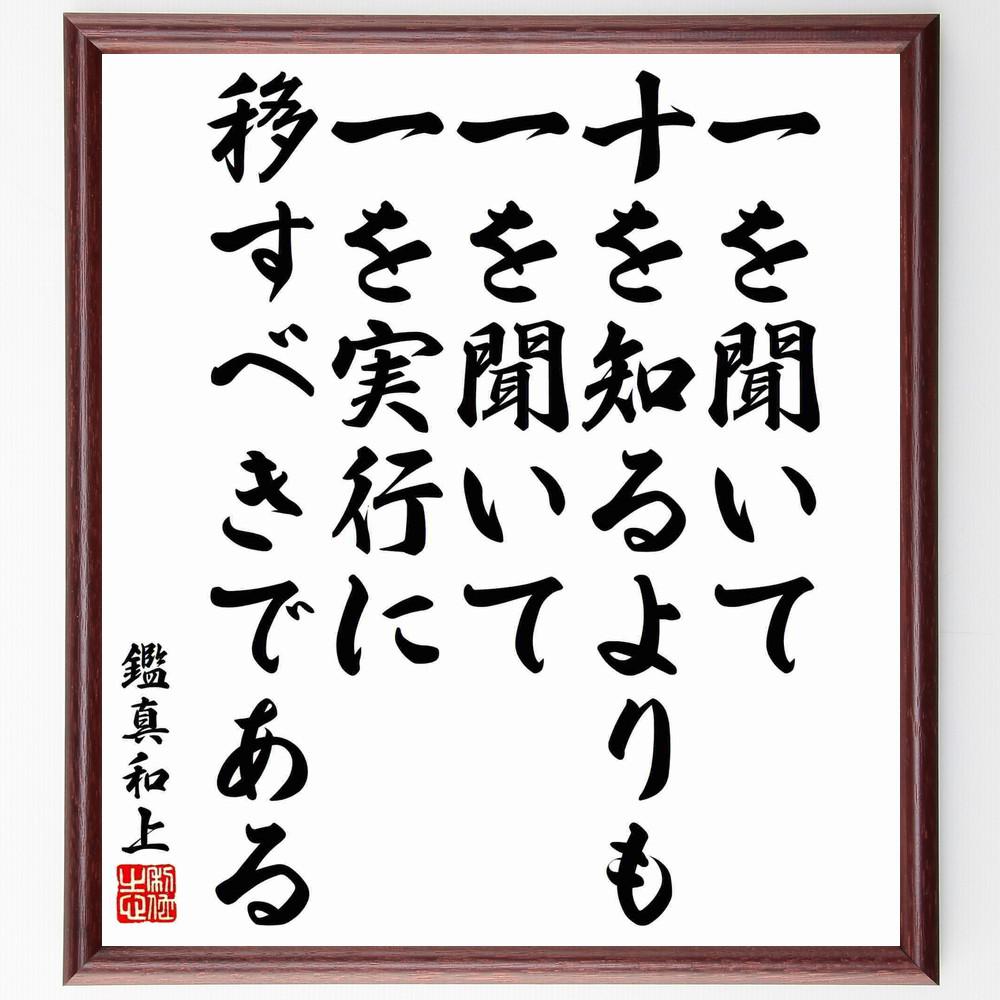 一を聞いて
十を知るよりも
一を聞いて
一を実行に
移すべきである
鑑真和上